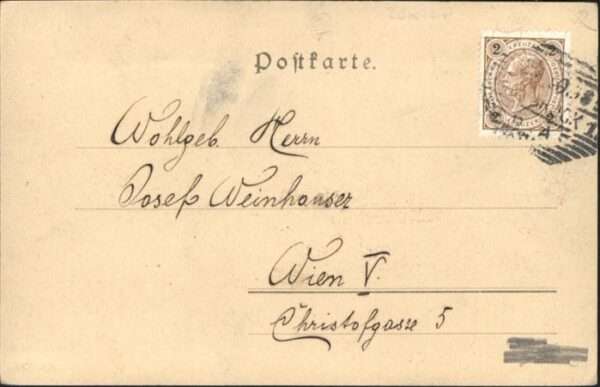 Postkarte.
2
Wohlgeb. Herrn
Josef Weinhauser
Wien V.
Christofgasse 5